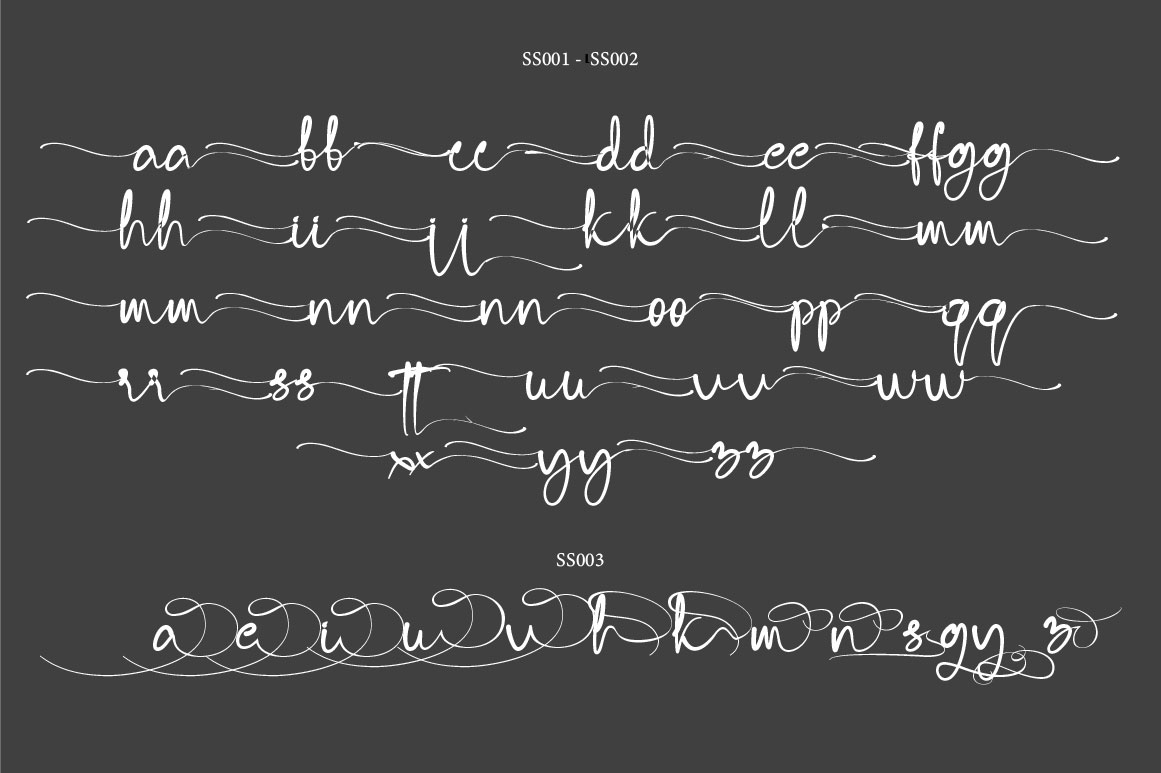 SS001 - SS002
aa bb cc dd ee ffgg
hh ii jj kk ll mm
mm nn nn oo pp qq
rr ss tt uu vv ww
xx yy zz
SS003
a e i u v h k m n s g y z